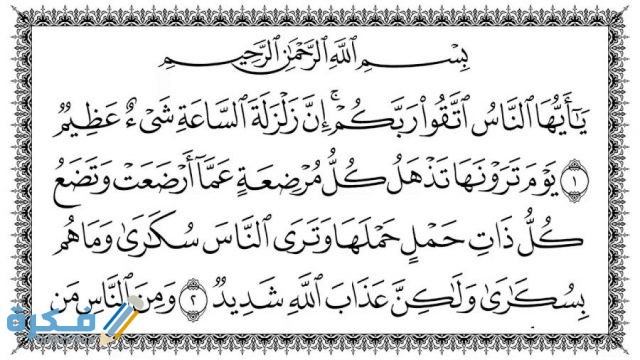 بِسْمِ ٱللَّهِ ٱلرَّحْمَٰنِ ٱلرَّحِيمِ
يَٰٓأَيُّهَا ٱلنَّاسُ ٱتَّقُوا۟ رَبَّكُمْ ۚ إِنَّ زَلْزَلَةَ ٱلسَّاعَةِ شَىْءٌ عَظِيمٌ
١ يَوْمَ تَرَوْنَهَا تَذْهَلُ كُلُّ مُرْضِعَةٍ عَمَّآ أَرْضَعَتْ وَتَضَعُ
كُلُّ ذَاتِ حَمْلٍ حَمْلَهَا وَتَرَى ٱلنَّاسَ سُكَٰرَىٰ وَمَا هُم
بِسُكَٰرَىٰ وَلَٰكِنَّ عَذَابَ ٱللَّهِ شَدِيدٌ ٢ وَمِنَ ٱلنَّاسِ مَن
فكرة